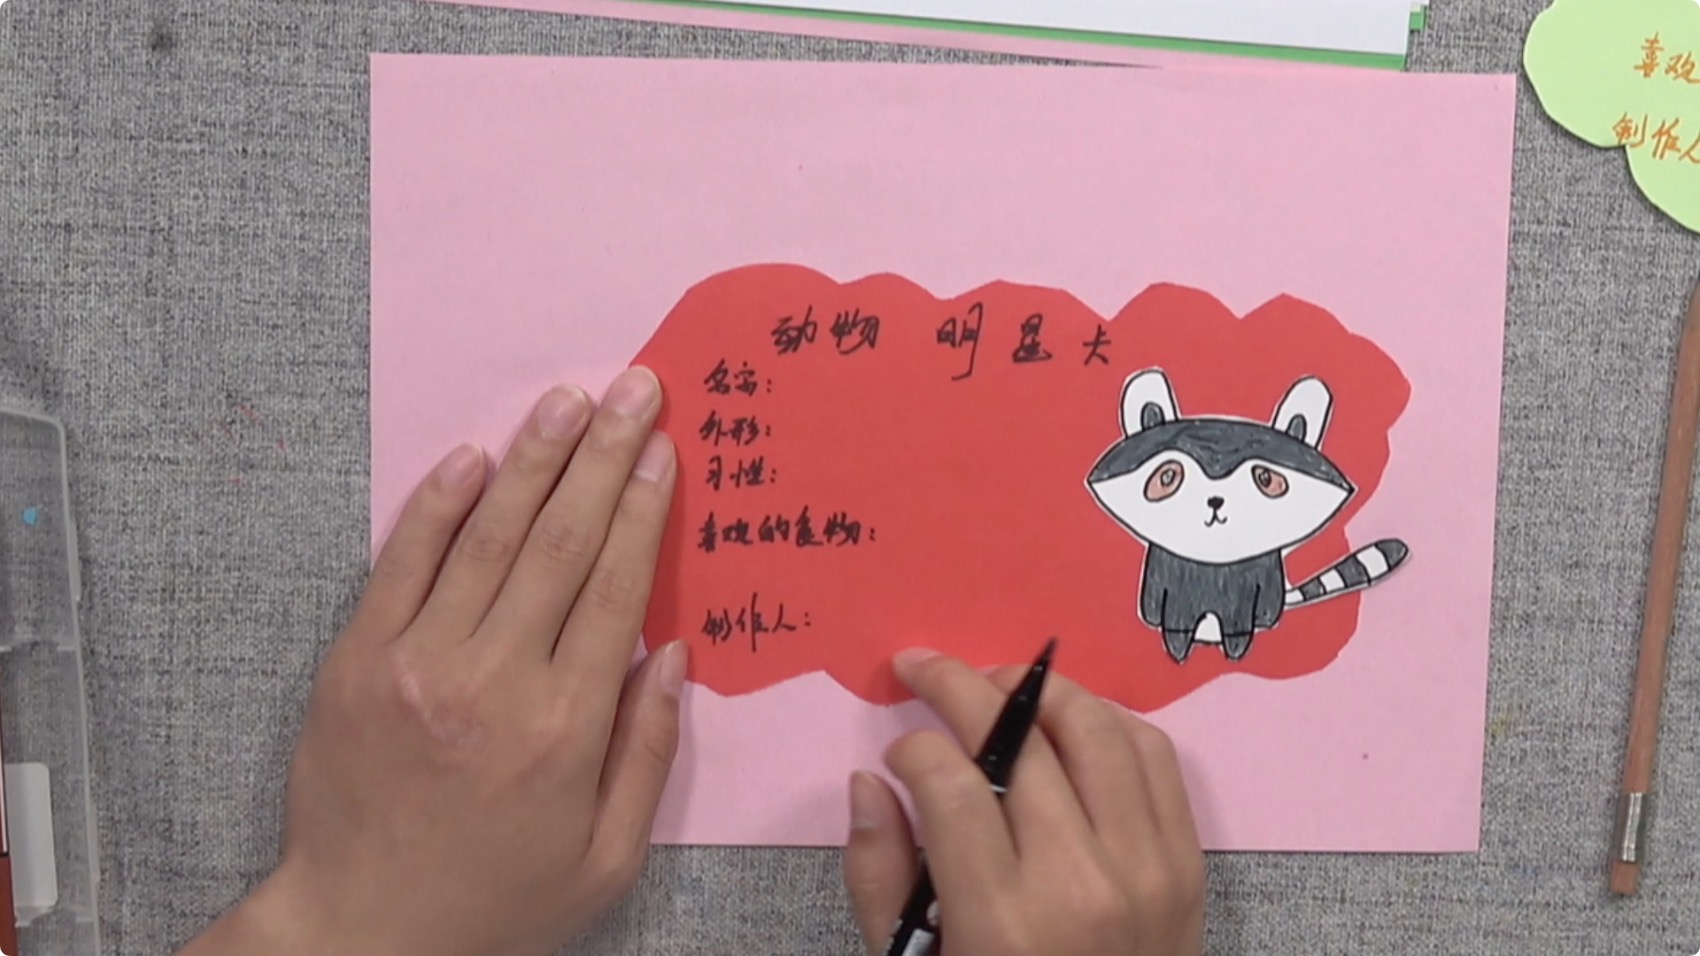 动物 明星卡
名字：
外形：
习性：
喜欢的食物：
制作人：
喜欢
制作人